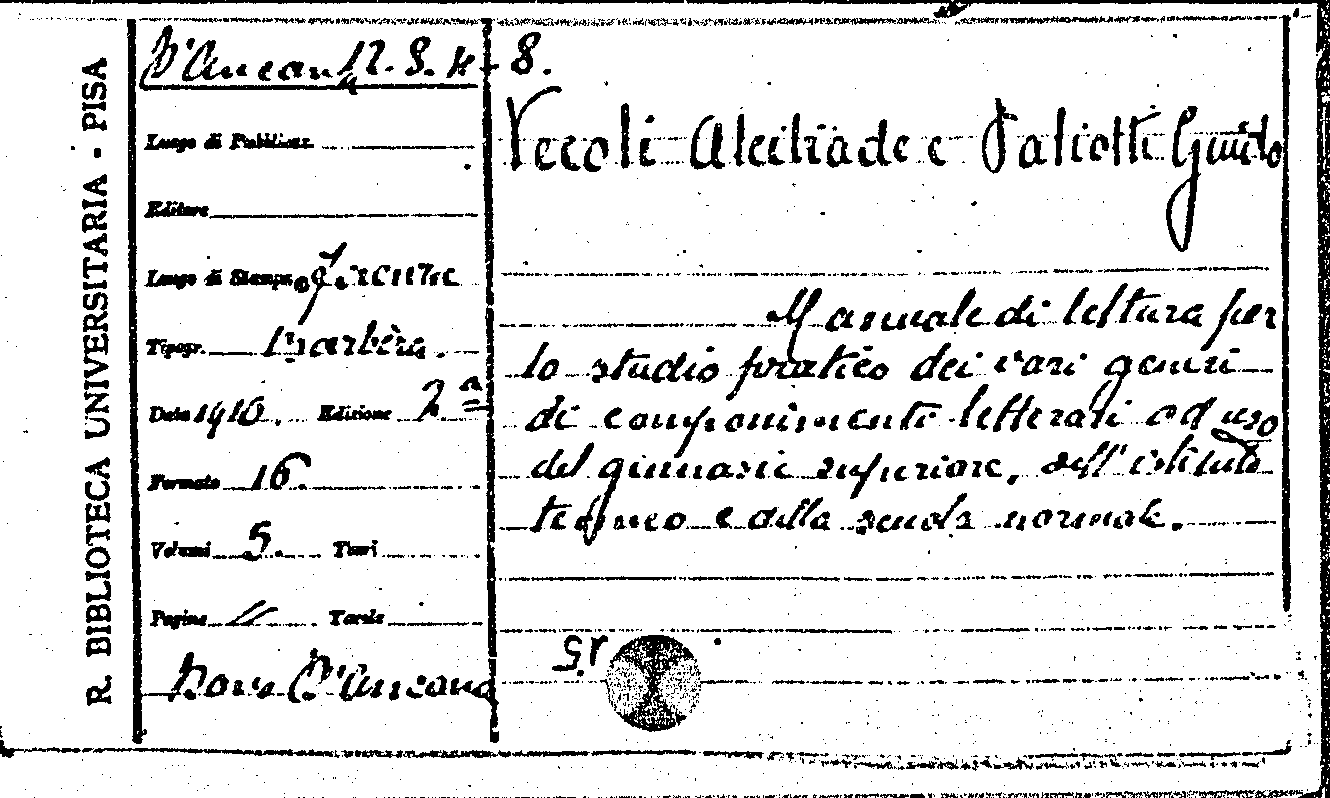 R. BIBLIOTECA UNIVERSITARIA - PISA
D'Ancona 12. 8. 8.
Luogo di Pubblicaz.
Editore
Luogo di Stampa Firenze
Tipogr. Barbèra.
Data 1910. Edizione 2ª
Formato 16.
Volumi 5. Tomi
Pagine // Tavole
Dono D'Ancona
Vecoli Alcibiade e Paliotti Guido
Manuale di lettura per
lo studio pratico dei vari generi
di componimenti letterari ad uso
del ginnasio superiore, dell'istituto
tecnico e della scuola normale.